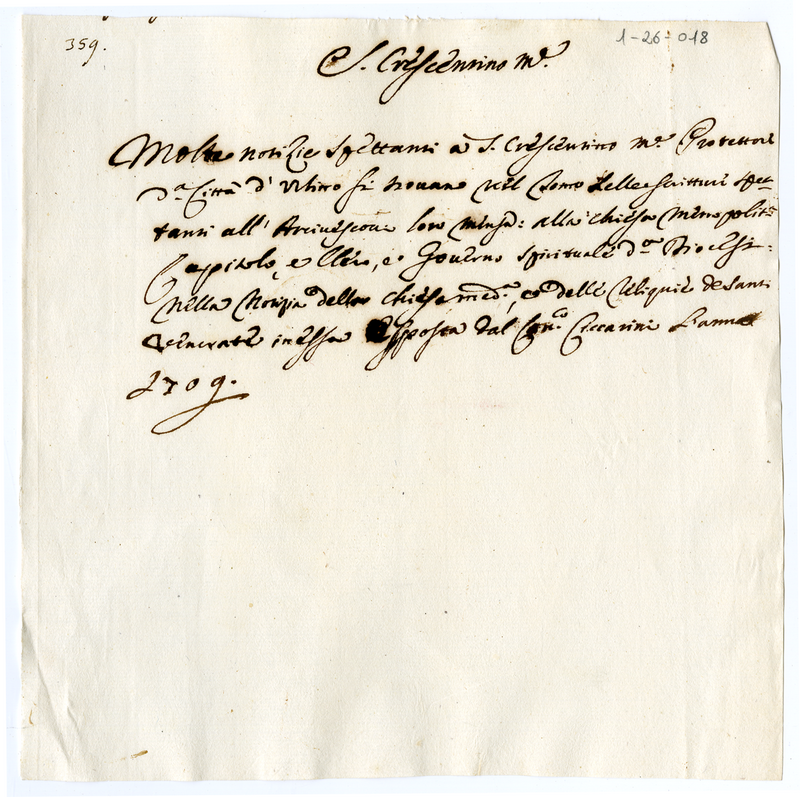 359.
1-26-018
S. Crescentino M.e
Molte notizie spettanti a S. Crescentino M.e Protettore
d.a Città d' Urbino si trovano nel Tomo delle scritture spet-
tanti all' Arcivescovi loro mensa: alla chiesa metropolit.a
Capitolo, e Clero, e Governo spirituale d.a Diocesi:
nella Notizia della chiesa med.a, e delle Reliquie de Santi
venerate in essa esposta dal Can.co Ceccarini l'anno
1709.